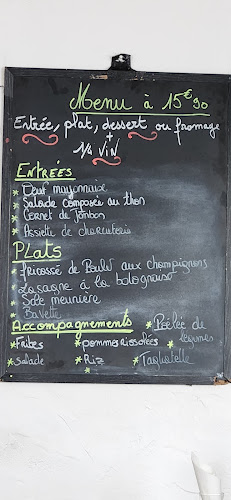 Menu à 15€90
Entrée, plat, dessert ou fromage
+
1/4 Vin
Entrées
* Oeuf mayonnaise
* Salade composée au thon
* Cornet de Jambon
* Assiette de charcuterie
Plats
* fricassé de Poulet aux champignons
* Lasagne à la bolognaise
* Sole meunière
* Bavette
Accompagnements
* Poêlée de légumes
* Frites * pommes rissolées *
* Salade * Riz * Tagliatelle
*